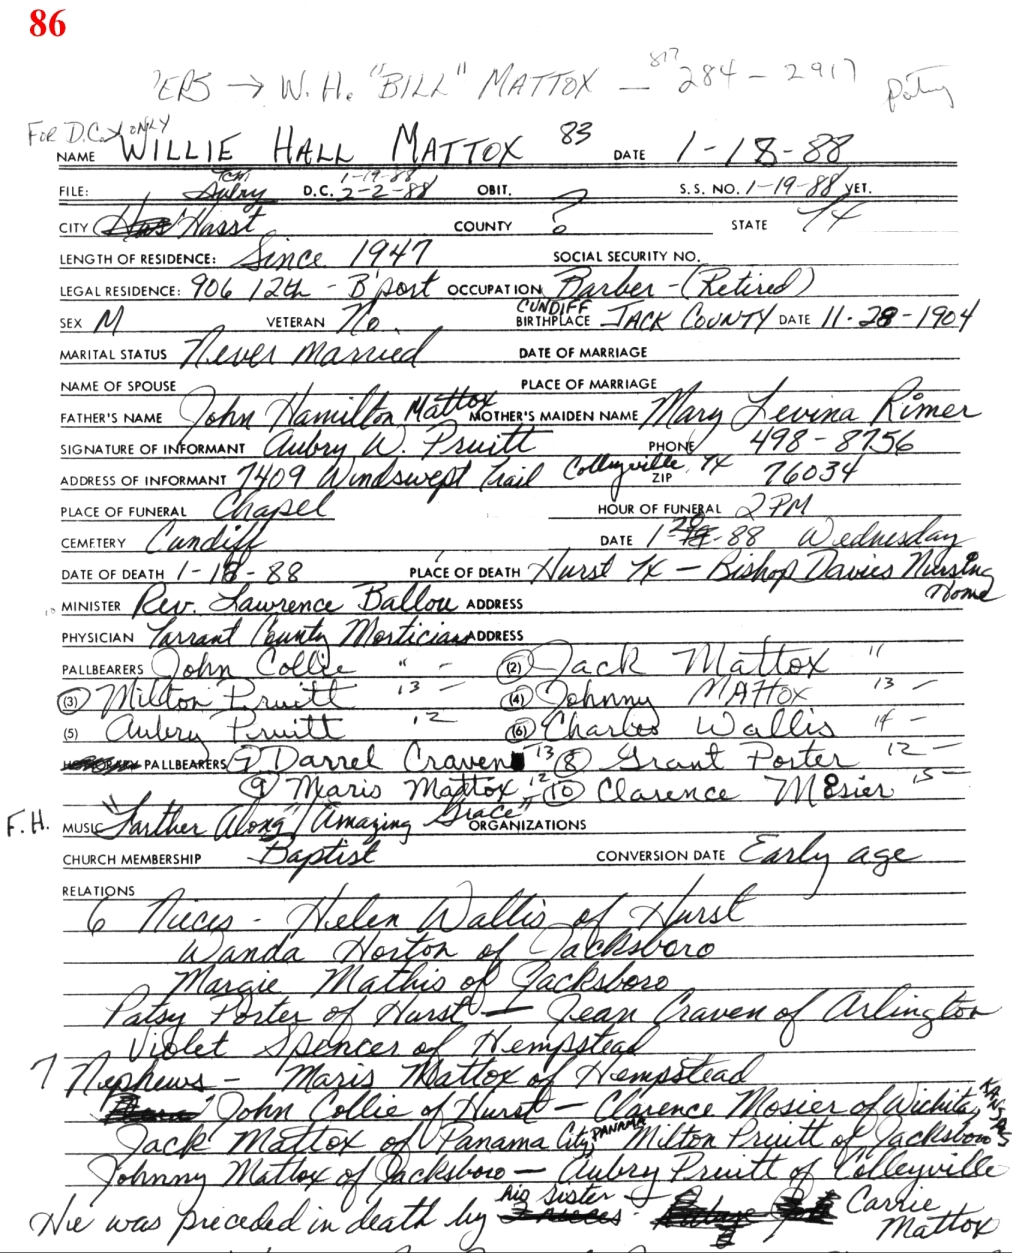 86
PERS → W. H. "BILL" MATTOX — 817 284 - 2917 Patsy
FOR D.C. ONLY
NAME WILLIE HALL MATTOX 83 DATE 1-18-88
FILE: TCM Aubry D.C. 1-19-88 2-2-88 OBIT. S.S. NO. 1-19-88 VET.
CITY Hurst COUNTY ? STATE TX
LENGTH OF RESIDENCE: Since 1947 SOCIAL SECURITY NO.
LEGAL RESIDENCE: 906 12th - B'port OCCUPATION Barber - (Retired)
SEX M VETERAN No. CUNDIFF BIRTHPLACE JACK COUNTY DATE 11-28-1904
MARITAL STATUS Never married DATE OF MARRIAGE
NAME OF SPOUSE PLACE OF MARRIAGE
FATHER'S NAME John Hamilton Mattox MOTHER'S MAIDEN NAME Mary Levina Rimer
SIGNATURE OF INFORMANT Aubry W. Pruitt PHONE 498-8756
ADDRESS OF INFORMANT 7409 Windswept Trail Colleyville, TX ZIP 76034
PLACE OF FUNERAL Chapel HOUR OF FUNERAL 2 PM
CEMETERY Cundiff DATE 1-20-88 Wednesday
DATE OF DEATH 1-18-88 PLACE OF DEATH Hurst TX - Bishop Davies Nursing Home
MINISTER Rev. Lawrence Ballou ADDRESS
PHYSICIAN Tarrant County Morticians ADDRESS
PALLBEARERS John Collie " - (2) Jack Mattox "
(3) Milton Pruitt 13 - (4) Johnny MATTOX 13 -
(5) Aubry Pruitt 12 - (6) Charles Wallis 14 -
HONORARY PALLBEARERS 7 Darrel Craven 13 8 Grant Porter 12 -
9 Maris Mattox 12 - 10 Clarence Mosier 15 -
F.H. MUSIC "Farther Along / Amazing Grace" ORGANIZATIONS
CHURCH MEMBERSHIP Baptist CONVERSION DATE Early age
RELATIONS
6 Nieces - Helen Wallis of Hurst
Wanda Horton of Jacksboro
Margie Mathis of Jacksboro
Patsy Porter of Hurst — Jean Craven of Arlington
Violet Spencer of Hempstead
7 Nephews - Maris Mattox of Hempstead
John Collie of Hurst - Clarence Mosier of Wichita, KANSAS
Jack Mattox of Panama City, PANAMA Milton Pruitt of Jacksboro
Johnny Mattox of Jacksboro - Aubry Pruitt of Colleyville
He was preceded in death by his sister - Carrie Mattox